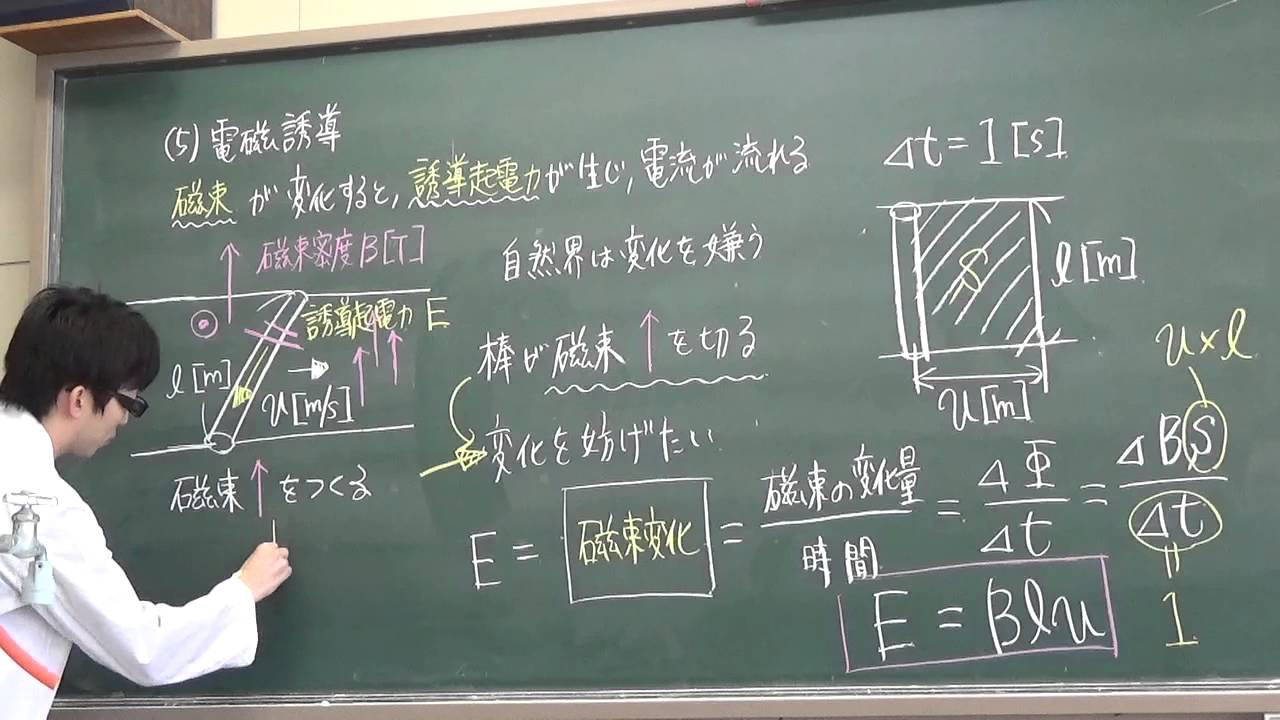 (5) 電磁誘導
磁束 が変化すると, 誘導起電力が生じ, 電流が流れる
磁束密度 B[T]
誘導起電力 E
l[m]
u[m/s]
磁束↑をつくる
自然界は変化を嫌う
棒が磁束↑を切る
変化を妨げたい
E = 磁束変化 = 磁束の変化量 / 時間 = ΔΦ / Δt = ΔBS / Δt
E = Blu
Δt = 1 [s]
S
l[m]
u[m]
u×l
1